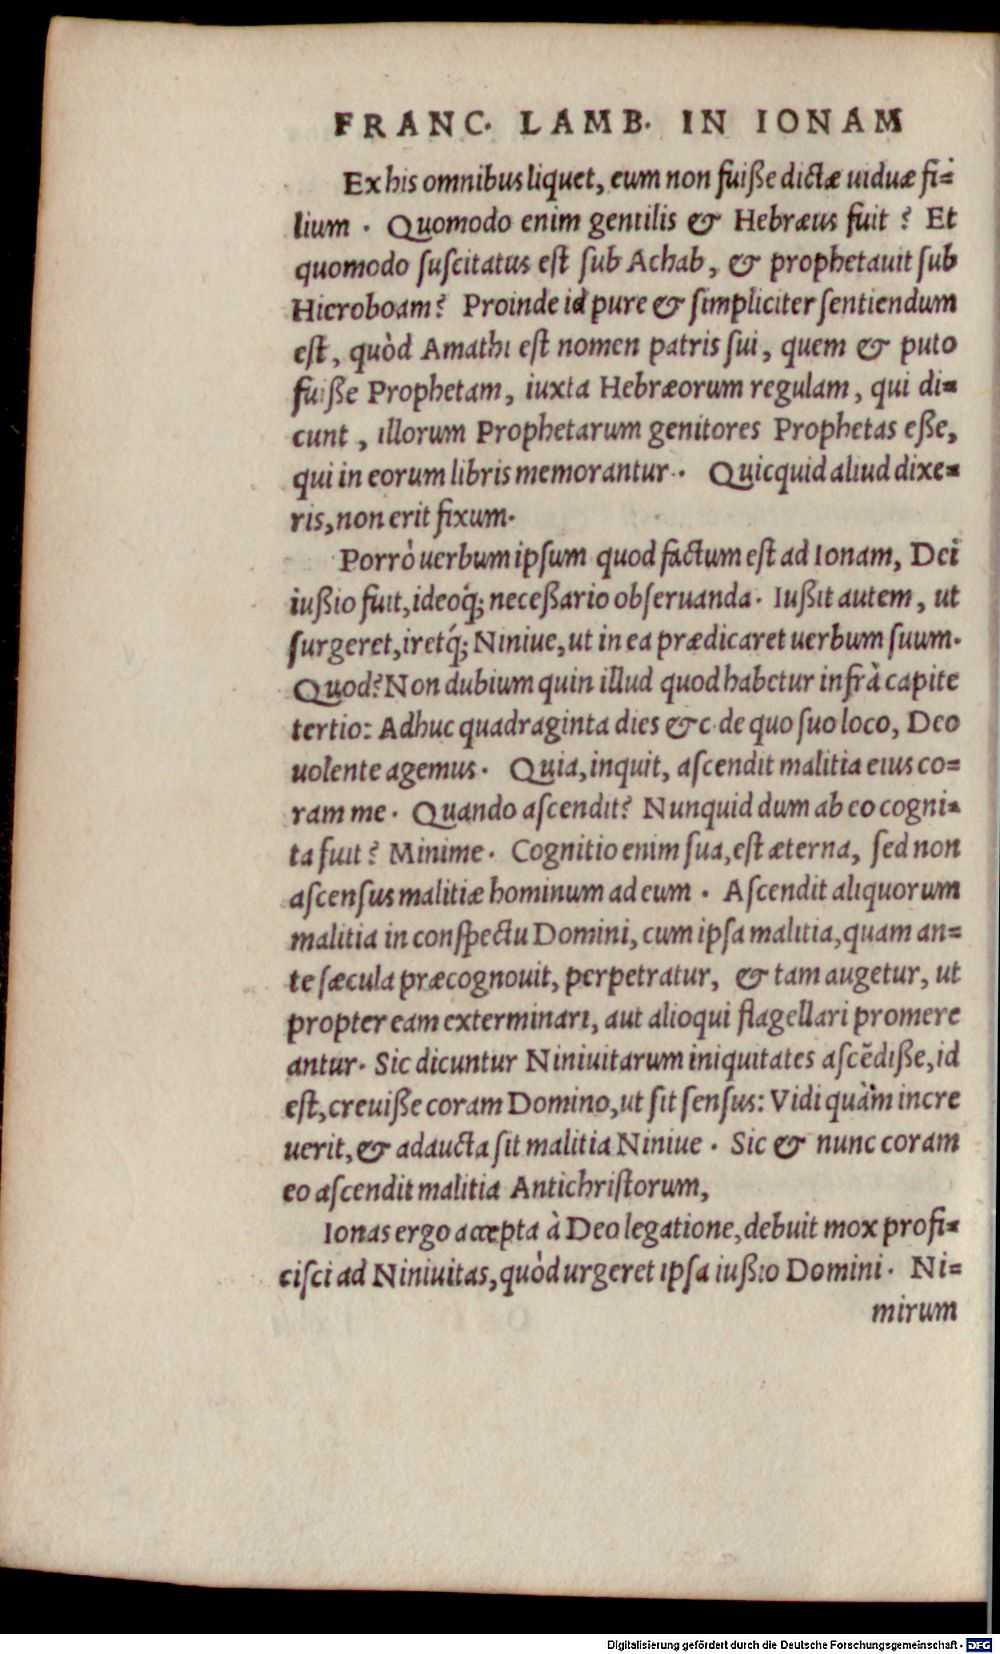 FRANC. LAMB. IN IONAM
Ex his omnibus liquet, eum non fuiſſe dictæ uiduæ fi-
lium . Quomodo enim gentilis & Hebræus fuit ? Et
quomodo ſuſcitatus eſt ſub Achab, & prophetauit ſub
Hieroboam? Proinde id pure & ſimpliciter ſentiendum
eſt, quòd Amathi eſt nomen patris ſui, quem & puto
fuiſſe Prophetam, iuxta Hebræorum regulam, qui di-
cunt , illorum Prophetarum genitores Prophetas eſſe,
qui in eorum libris memorantur . Quicquid aliud dixe-
ris, non erit fixum.
Porrò uerbum ipſum quod factum eſt ad Ionam, Dei
iuſſio fuit, ideoq́; neceſſario obſeruanda. Iuſſit autem, ut
ſurgeret, iretq́; Niniue, ut in ea prædicaret uerbum ſuum.
Quod? Non dubium quin illud quod habetur infrà capite
tertio: Adhuc quadraginta dies &c. de quo ſuo loco, Deo
uolente agemus. Quia, inquit, aſcendit malitia eius co-
ram me. Quando aſcendit? Nunquid dum ab eo cogni-
ta fuit ? Minime. Cognitio enim ſua, eſt æterna, ſed non
aſcenſus malitiæ hominum ad eum . Aſcendit aliquorum
malitia in conſpectu Domini, cum ipſa malitia, quam an-
te ſæcula præcognouit, perpetratur, & tam augetur, ut
propter eam exterminari, aut alioqui flagellari promere
antur. Sic dicuntur Niniuitarum iniquitates aſcēdiſſe, id
eſt, creuiſſe coram Domino, ut ſit ſenſus: Vidi quàm incre
uerit, & adaucta ſit malitia Niniue . Sic & nunc coram
eo aſcendit malitia Antichriſtorum,
Ionas ergo accepta à Deo legatione, debuit mox profi-
ciſci ad Niniuitas, quòd urgeret ipſa iuſſio Domini . Ni-
mirum
Digitalisierung gefördert durch die Deutsche Forschungsgemeinschaft - DFG